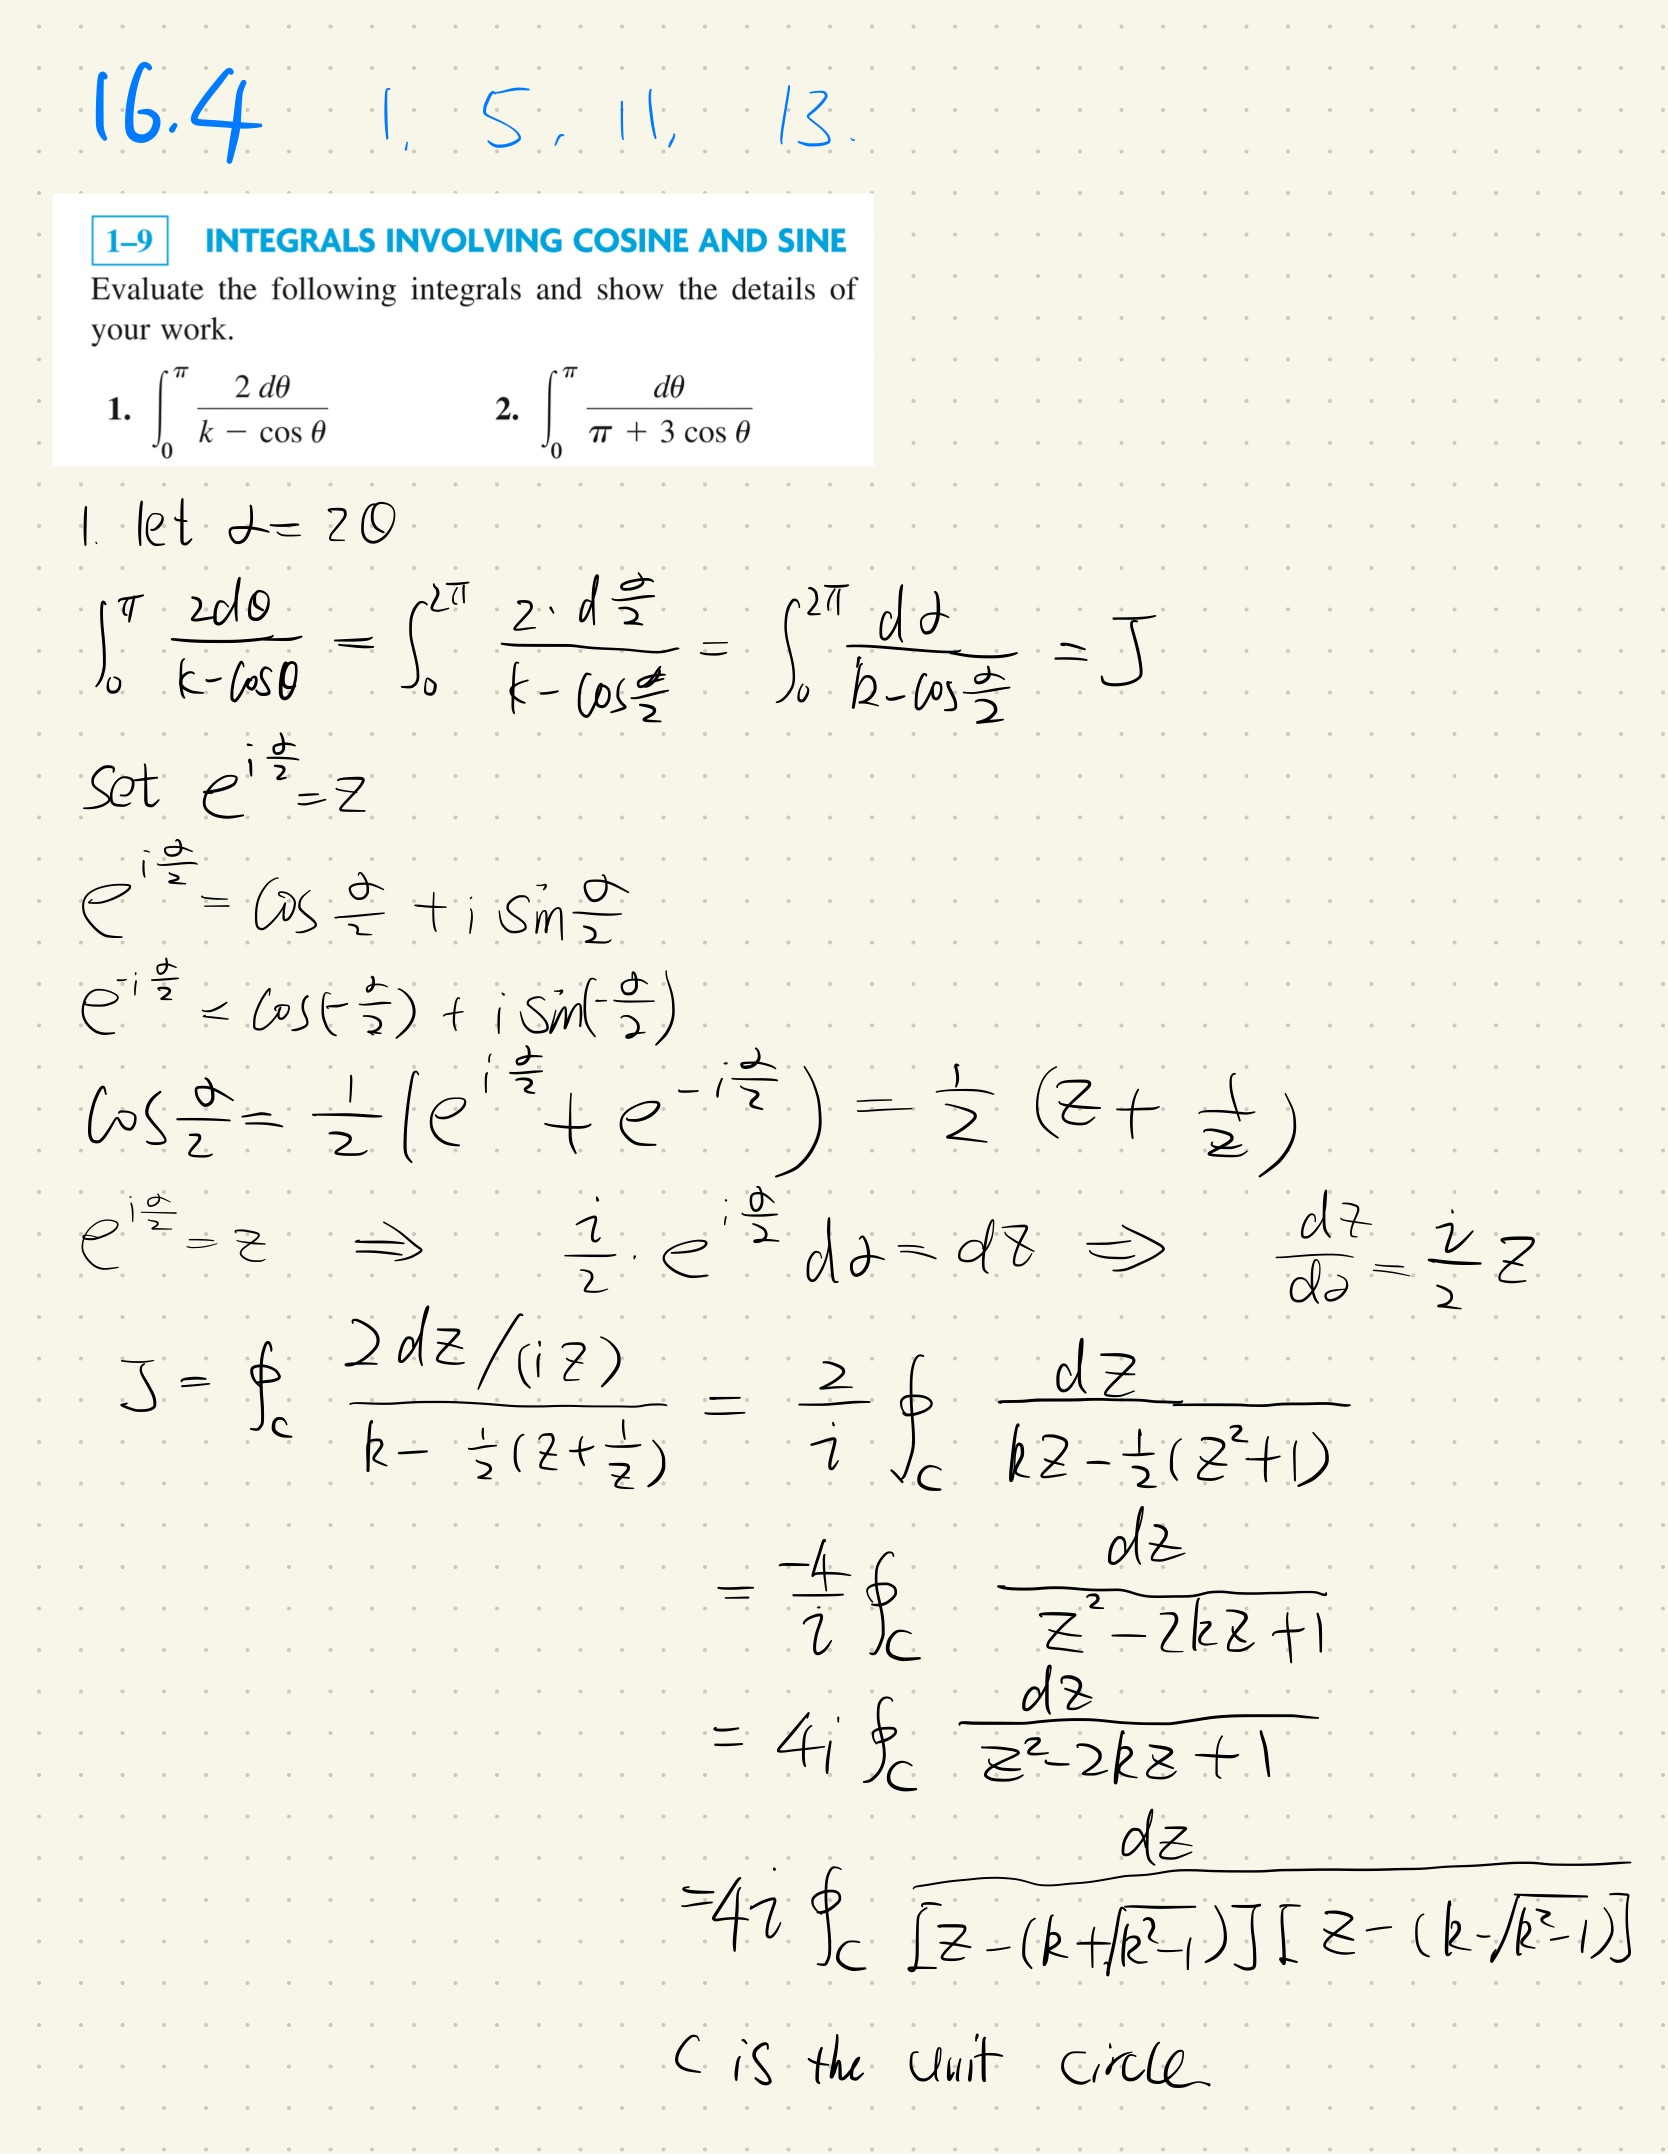 16.4 1, 5, 11, 13.
1–9 INTEGRALS INVOLVING COSINE AND SINE
Evaluate the following integrals and show the details of
your work.
1. ∫₀^π 2 dθ / (k − cos θ) 2. ∫₀^π dθ / (π + 3 cos θ)
1. let α = 2θ
∫₀^π 2dθ / (k − cosθ) = ∫₀^{2π} 2·d(α/2) / (k − cos(α/2)) = ∫₀^{2π} dα / (k − cos(α/2)) = J
Set e^{i α/2} = z
e^{i α/2} = cos α/2 + i sin α/2
e^{-i α/2} = cos(-α/2) + i sin(-α/2)
cos α/2 = 1/2 (e^{i α/2} + e^{-i α/2}) = 1/2 (z + 1/z)
e^{i α/2} = z ⇒ i/2 · e^{i α/2} dα = dz ⇒ dz/dα = i/2 z
J = ∮_C (2dz/(iz)) / (k − 1/2 (z + 1/z)) = 2/i ∮_C dz / (kz − 1/2 (z² + 1))
= -4/i ∮_C dz / (z² − 2kz + 1)
= 4i ∮_C dz / (z² − 2kz + 1)
= 4i ∮_C dz / ([z − (k + √(k²−1))] [z − (k − √(k²−1))])
C is the unit circle